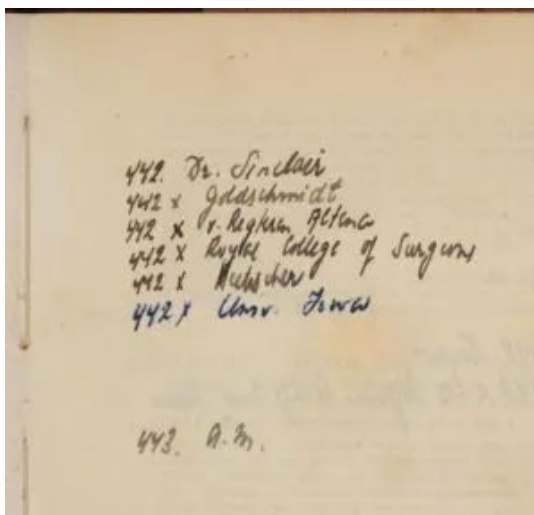 442. Dr. Sinclair
442 x Goldschmidt
442 x v. Altona
442 x Royal College of Surgeons
442 x
442 x Univ. Iowa
443. A.M.